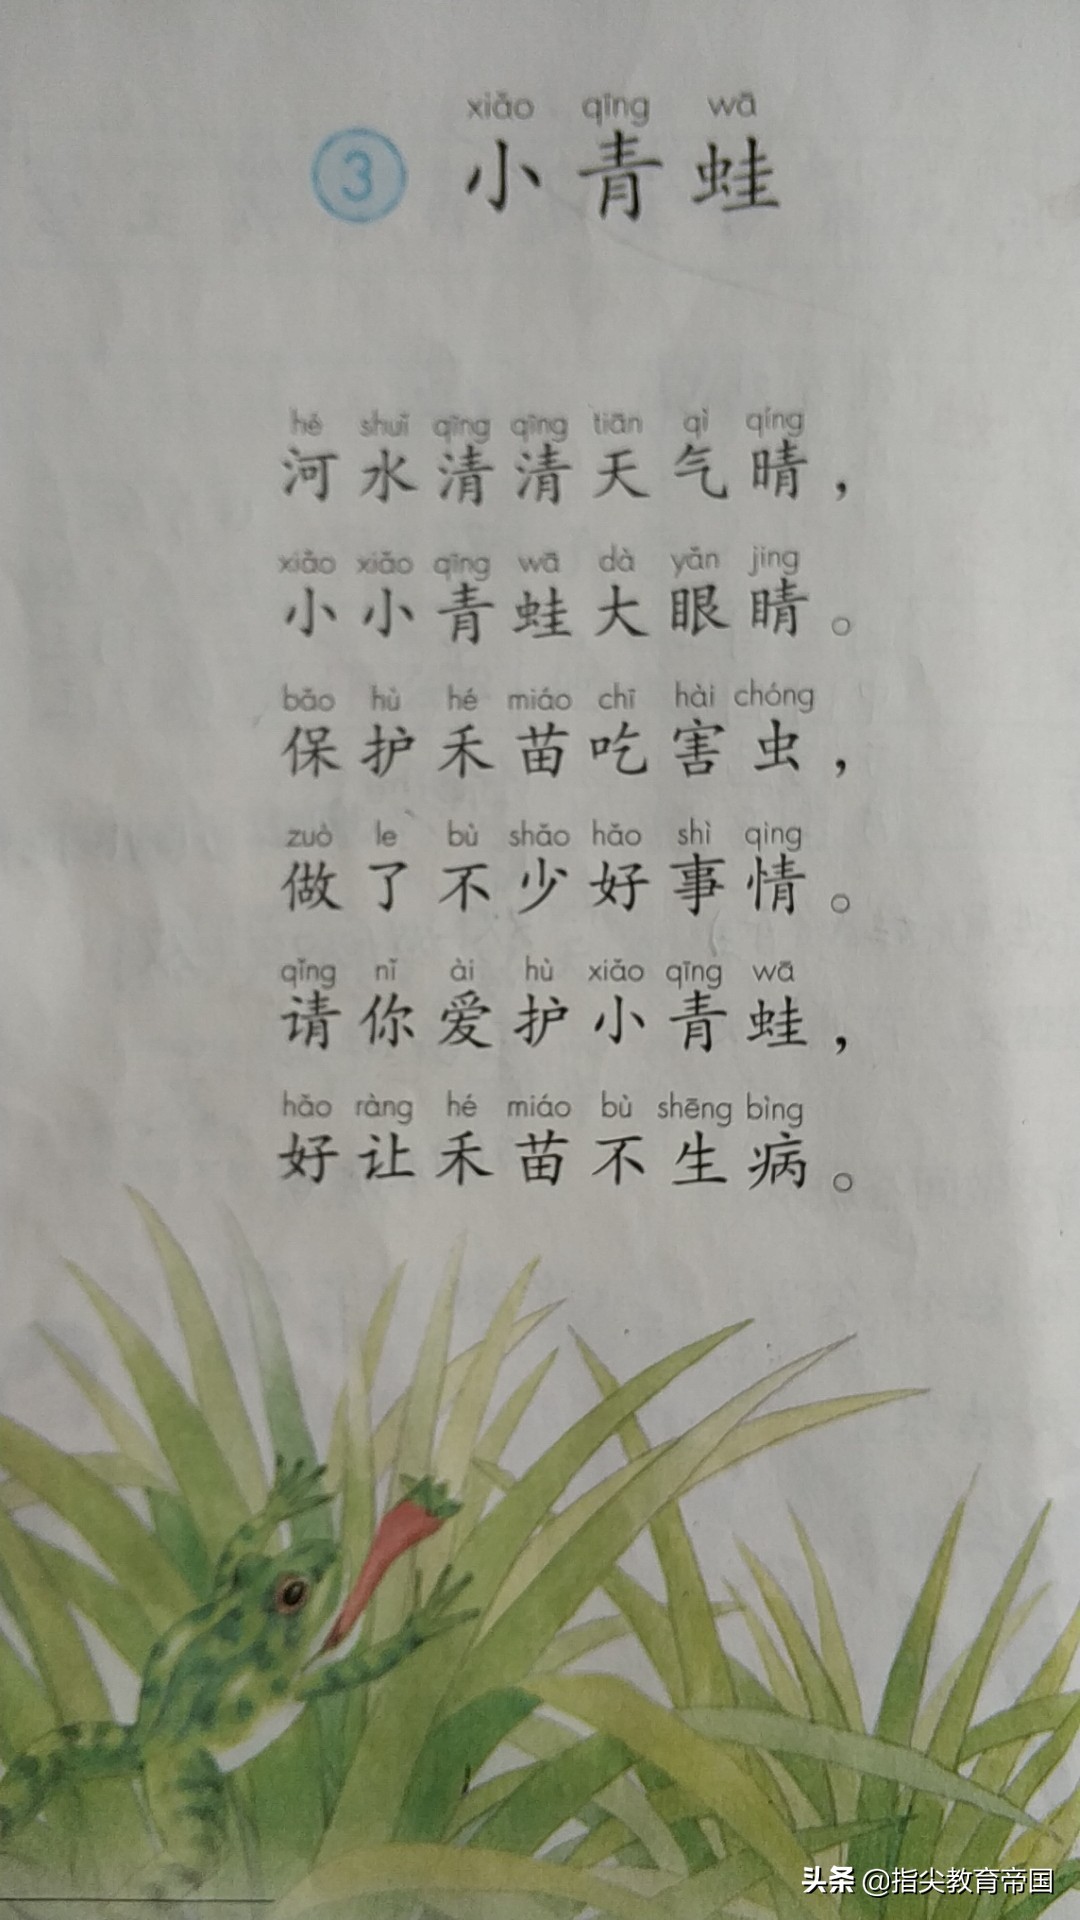 xiǎo qīng wā
③ 小青蛙
hé shuǐ qīng qīng tiān qì qíng
河水清清天气晴，
xiǎo xiǎo qīng wā dà yǎn jing
小小青蛙大眼睛。
bǎo hù hé miáo chī hài chóng
保护禾苗吃害虫，
zuò le bù shǎo hǎo shì qing
做了不少好事情。
qǐng nǐ ài hù xiǎo qīng wā
请你爱护小青蛙，
hǎo ràng hé miáo bù shēng bìng
好让禾苗不生病。
头条 @指尖教育帝国